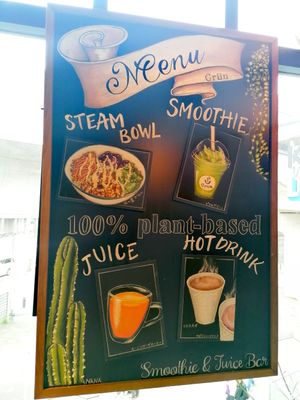 Menu
Grün
STEAM
BOWL
SMOOTHIE
100% plant-based
JUICE
HOT DRINK
Smoothie & Juice Bar